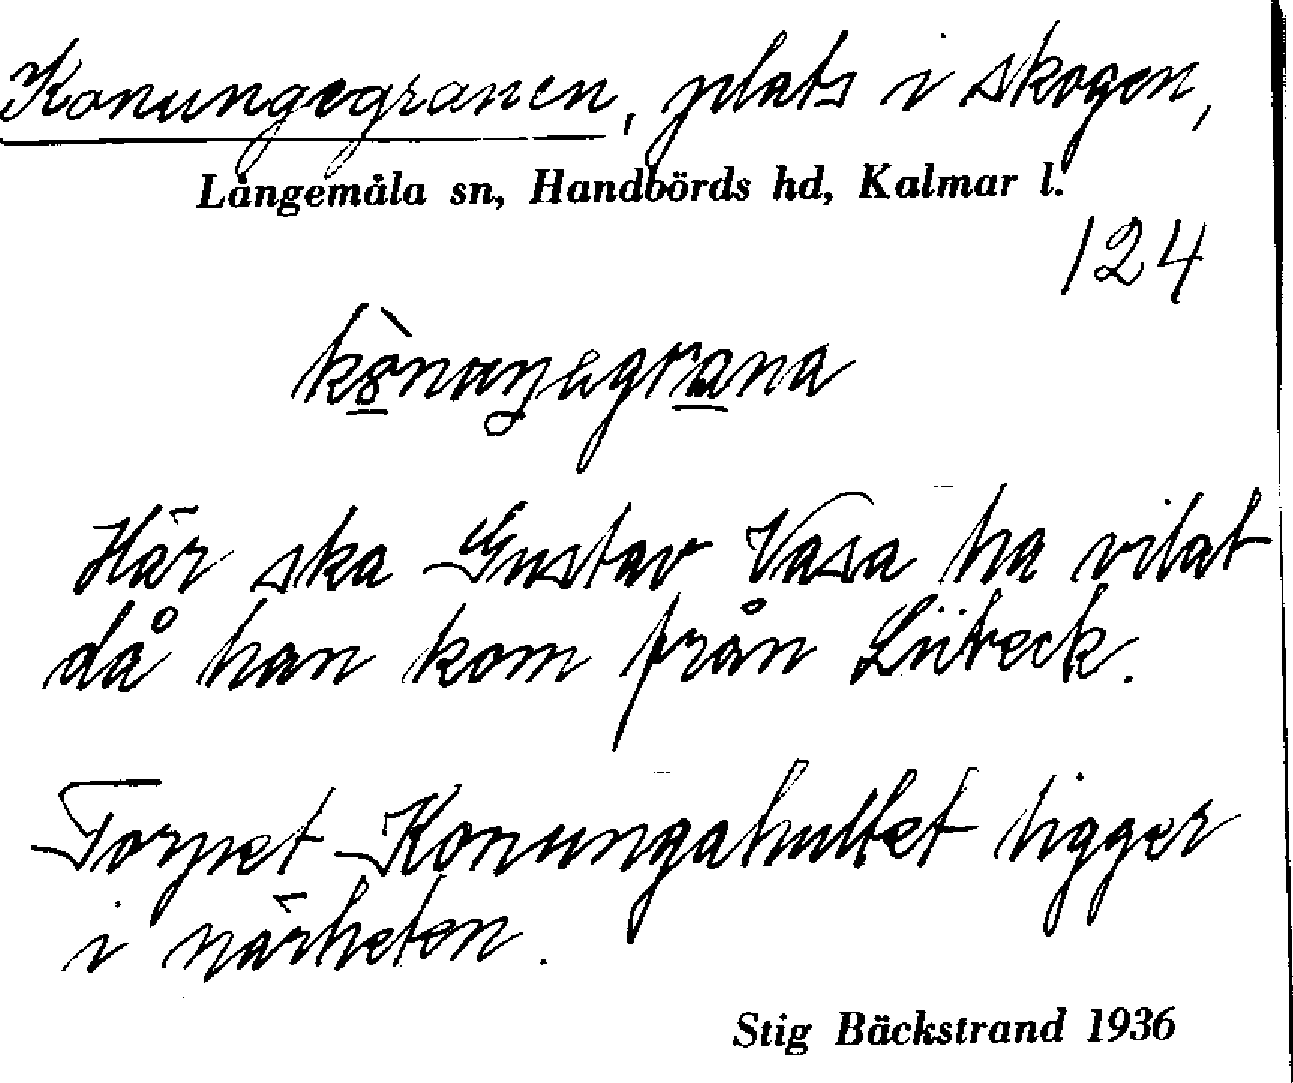 Konungegranen, plats i skogen,
Långemåla sn, Handbörds hd, Kalmar l.
124
Här ska Gustav Vasa ha vilat
då han kom från Lübeck.
Torpet Konungahultet ligger
i närheten.
Stig Bäckstrand 1936